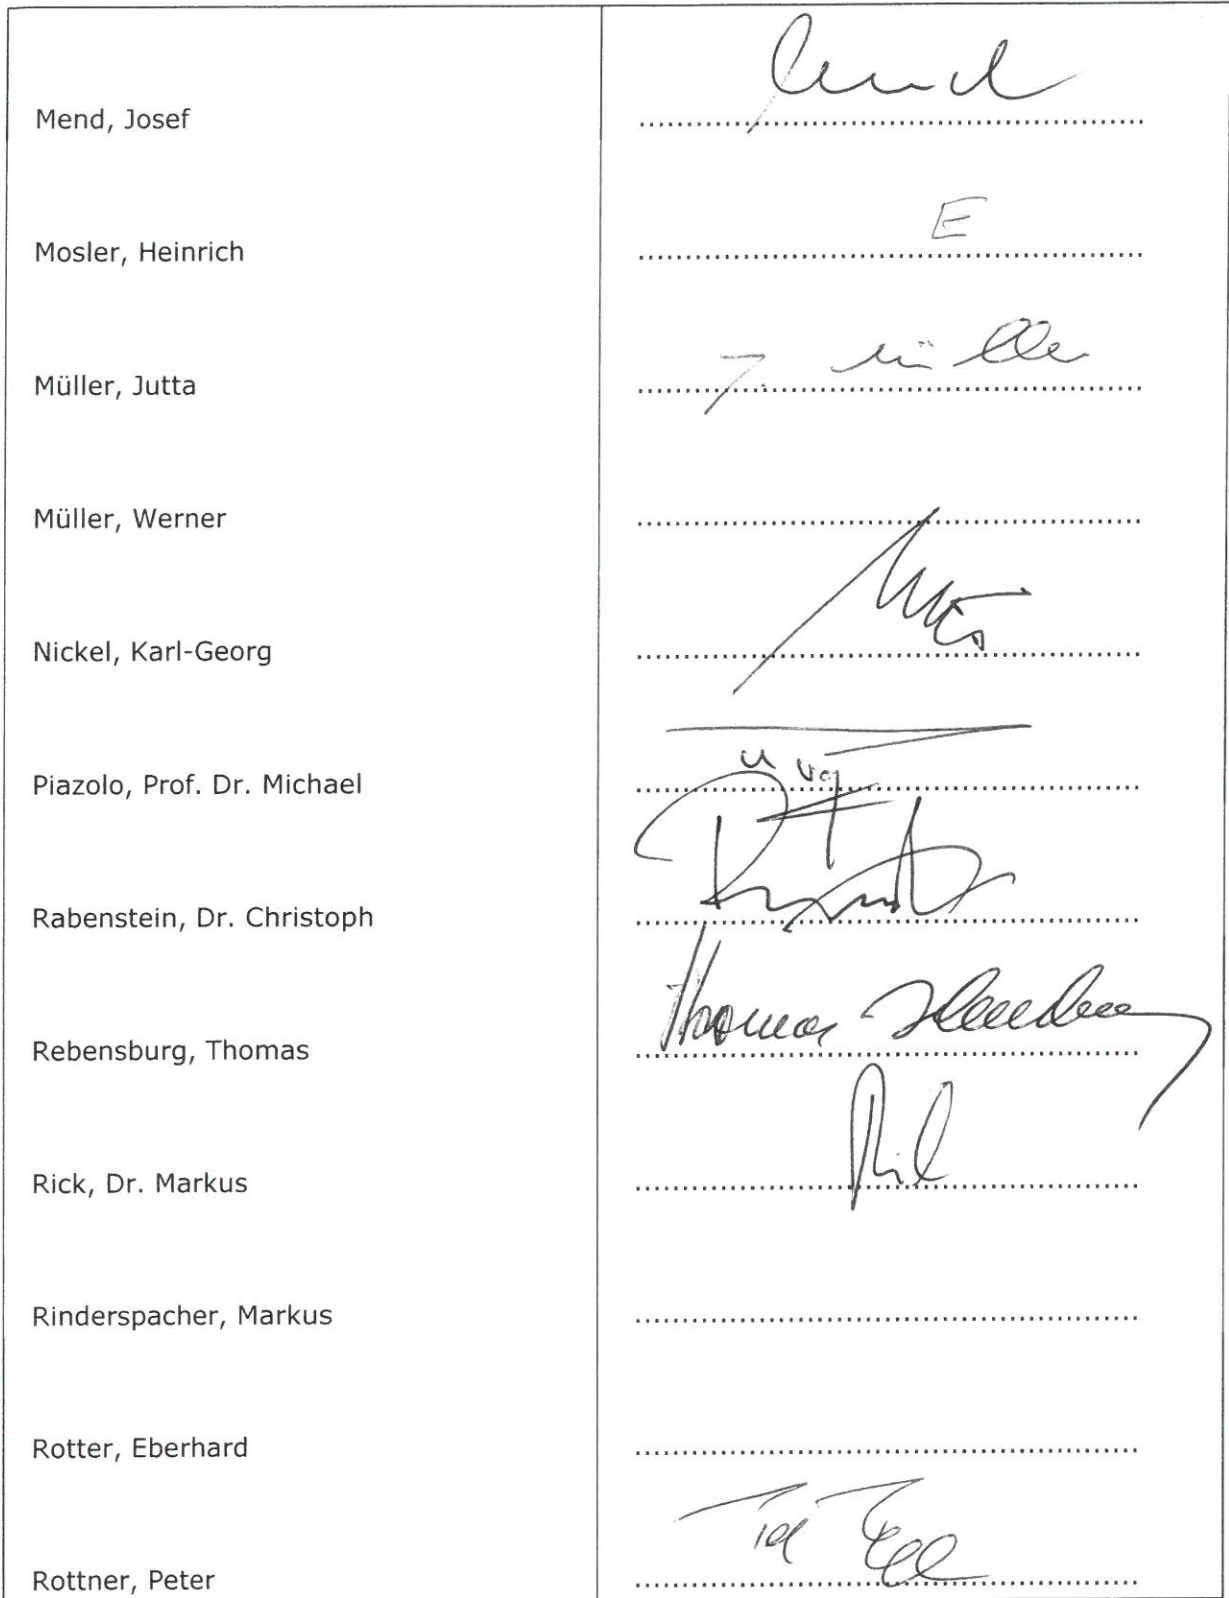 Mend, Josef
Mosler, Heinrich E
Müller, Jutta J. Müller
Müller, Werner
Nickel, Karl-Georg
Piazolo, Prof. Dr. Michael
Rabenstein, Dr. Christoph
Rebensburg, Thomas Thomas
Rick, Dr. Markus
Rinderspacher, Markus
Rotter, Eberhard
Rottner, Peter